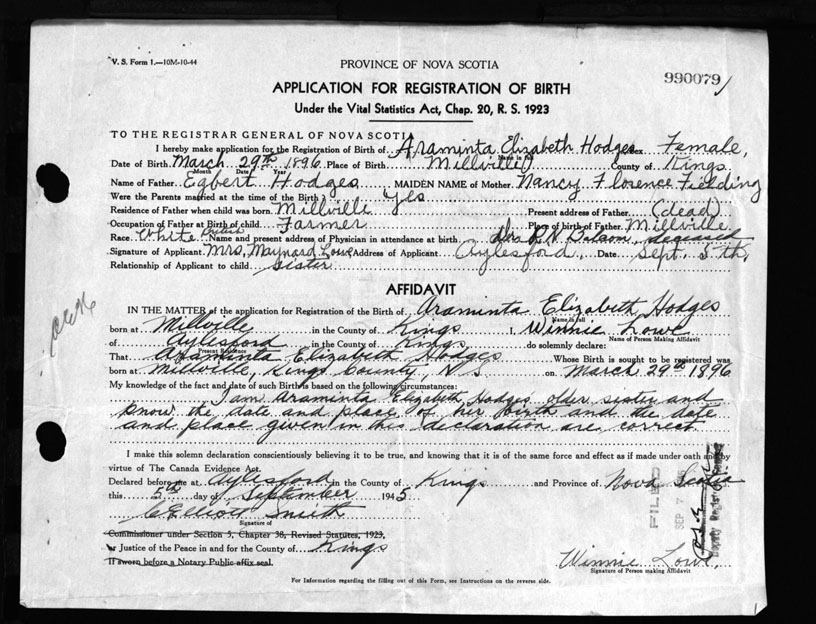 V. S. Form 1.—10M-10-44
PROVINCE OF NOVA SCOTIA
990079
APPLICATION FOR REGISTRATION OF BIRTH
Under the Vital Statistics Act, Chap. 20, R. S. 1923
TO THE REGISTRAR GENERAL OF NOVA SCOTIA
I hereby make application for the Registration of Birth of Araminta Elizabeth Hodges Sex Female,
Name in full
Date of Birth March 29th 1896 Place of Birth Millville County of Kings
Month Date Year
Name of Father Egbert Hodges MAIDEN NAME of Mother Nancy Florence Fielding
Were the Parents married at the time of the Birth? Yes
Residence of Father when child was born Millville Present address of Father (dead)
Occupation of Father at Birth of child Farmer Place of birth of Father Millville
Race White Name and present address of Physician in attendance at birth Dr. R N
Signature of Applicant Mrs. Maynard Lowe Address of Applicant Aylesford, Date Sept. 5th,
Relationship of Applicant to child sister
AFFIDAVIT
IN THE MATTER of the application for Registration of the Birth of Araminta Elizabeth Hodges
Name in full
born at Millville in the County of Kings I, Winnie Lowe
Name of Person Making Affidavit
of Aylesford in the County of Kings, do solemnly declare:
Present Residence
That Araminta Elizabeth Hodges Whose Birth is sought to be registered was
born at Millville, Kings County, N S on March 29th 1896
My knowledge of the fact and date of such Birth is based on the following circumstances:
I am Araminta Elizabeth Hodges older sister and
know the date and place of her birth and the date
and place given in this declaration are correct.
I make this solemn declaration conscientiously believing it to be true, and knowing that it is of the same force and effect as if made under oath and by
virtue of The Canada Evidence Act.
Declared before me at Aylesford in the County of Kings and Province of Nova Scotia
this 5th day of September 1945
C Elliott Smith
Signature of
Commissioner under Section 5, Chapter 38, Revised Statutes, 1923,
or Justice of the Peace in and for the County of Kings
If sworn before a Notary Public affix seal.
FILED
SEP 7
Winnie Lowe,
Signature of Person making Affidavit
For Information regarding the filling out of this Form, see Instructions on the reverse side.
1